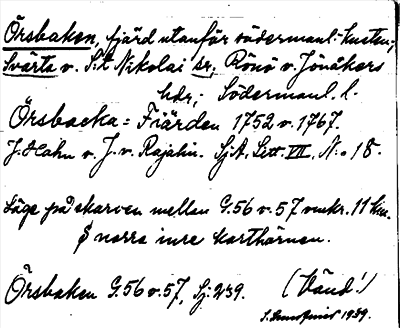 Örsbaken, fjärd utanför södermanl.-kusten;
Svärta o. S:t Nikolai sn, Rönö o. Jönåkers
hdr, Södermanl. l.
Örsbacka=Fiärden 1752 o. 1767.
J. Hahn o. J. v. Rajalin. SjA, Litt. VII, N:o 18.
Läge på skarven mellan G.56 o. 57 omkr. 11 km.
norra inre karthörnen.
Örsbaken G.56 o. 57, Sj. 239. (Vänd!)
1939.